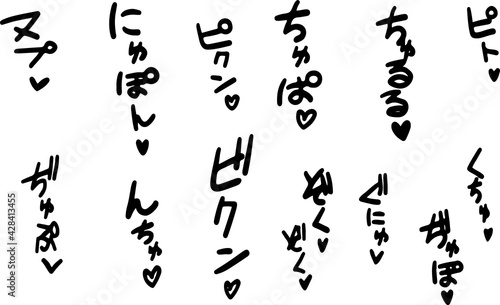 ピト♥
ちゅるる♥
ちゅぽ♥
ピクン♡
にゅぽん♥
ヌペ♥
くちゅ♥
ぢゅぽ♥
ぐにゅ♥
ぞく♥
ぞく♥
ビクン♡
んちゅ♡
ぢゅぷ♡
Adobe Stock | #428413455